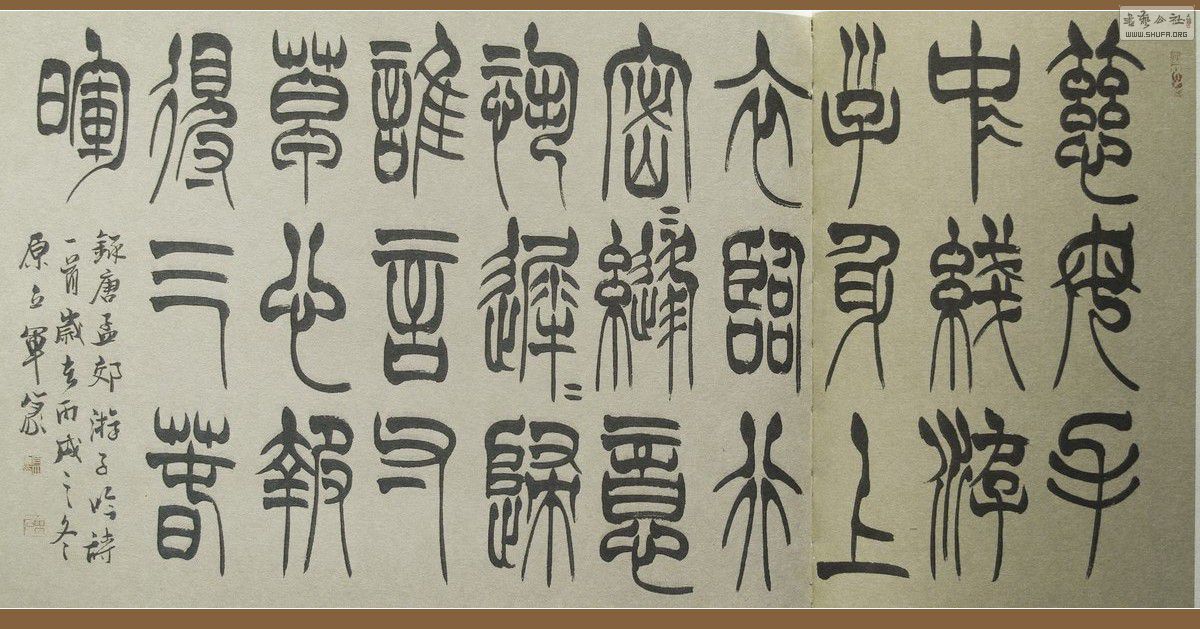 慈母手
中綫游
子身上
衣臨行
密〻縫意
恐遲〻歸
誰言寸
草心報
得三春
暉
錄唐孟郊游子吟詩
一首歲在丙戌之冬
原立軍篆
書藝公社
WWW.SHUFA.ORG